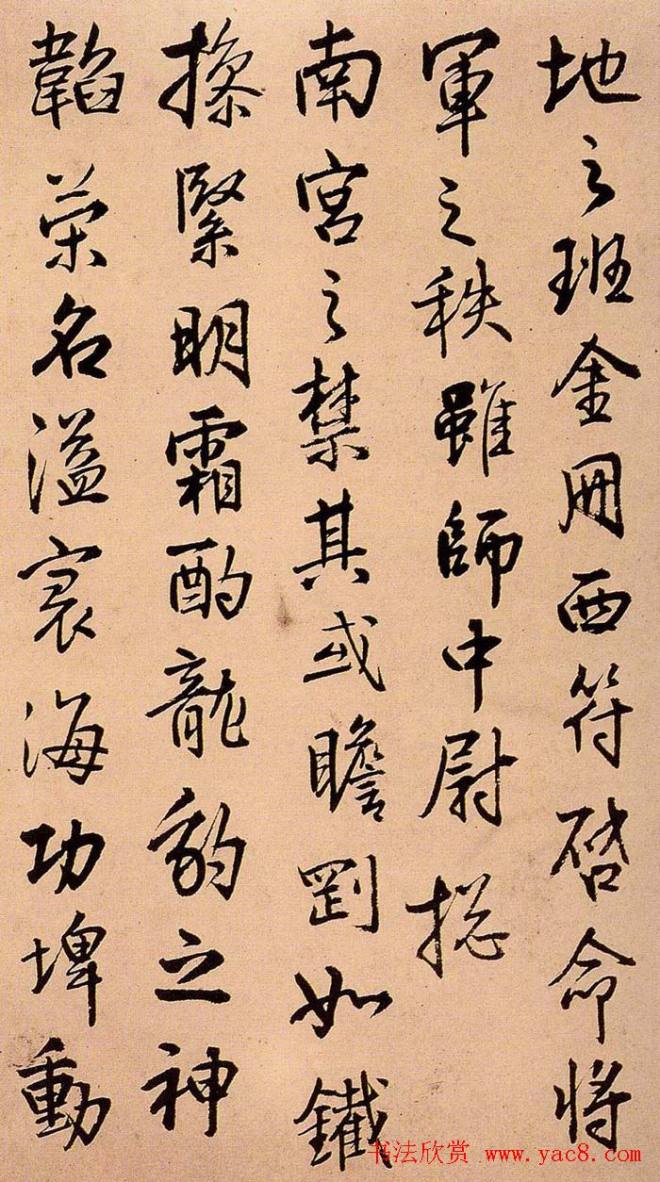 地之班金册西符啓命将
軍之秩雖師中尉揔
南宫之禁其或瞻罰如鐵
操緊明霜酌龍豹之神
韜榮名溢寰海功埤動
书法欣赏 www.yac8.com